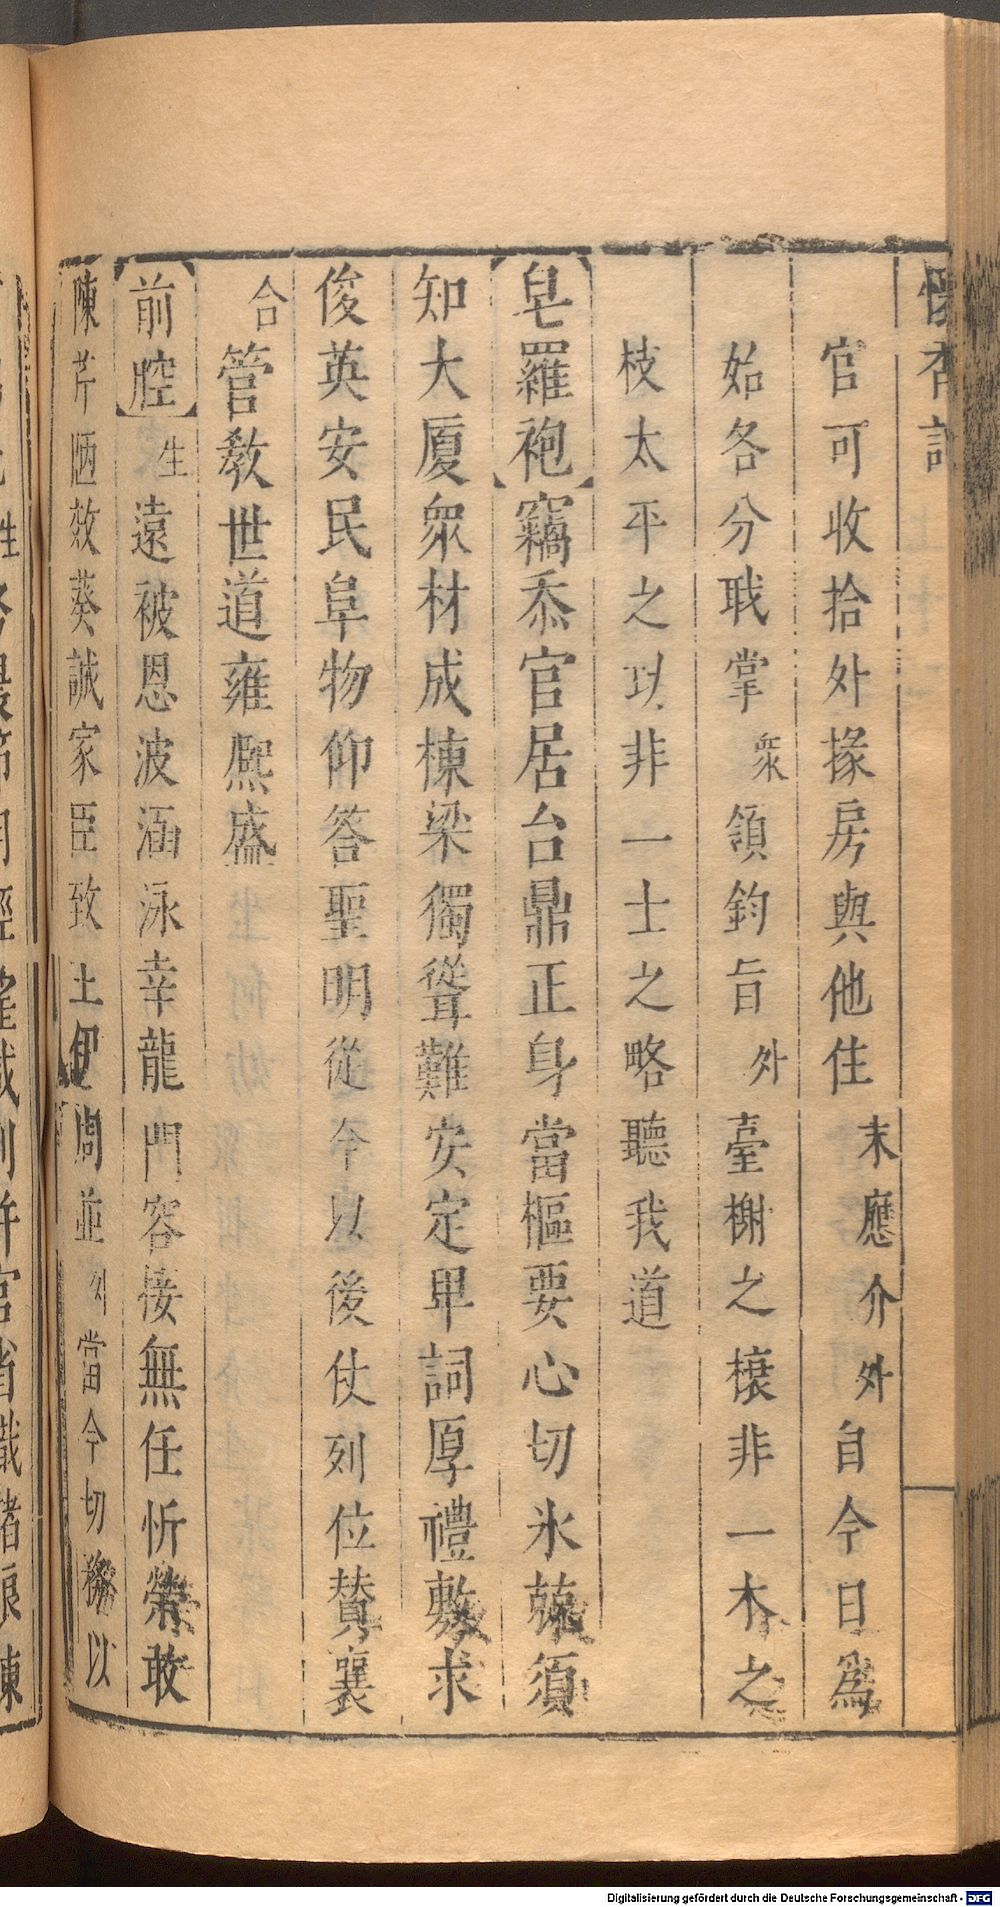 懷香記
官可收拾外掾房與他住 末應介外 自今日爲
始各分職掌 衆 領鈞旨 外 臺榭之榱非一木之
枝太平之以非一士之略聽我道
【皂羅袍】竊忝官居台鼎正身當樞要心切氷兢須
知大厦衆材成棟梁獨聳難安定卑詞厚禮敷求
俊英安民阜物仰答聖明從今以後仗列位賛襄
合 管教世道雍熙盛
【前腔】 生 遠被恩波涵泳幸龍門容接無任忻榮敢
陳芹陋效葵誠家臣致土伊周並 外 當今切務以
Digitalisierung gefördert durch die Deutsche Forschungsgemeinschaft - DFG